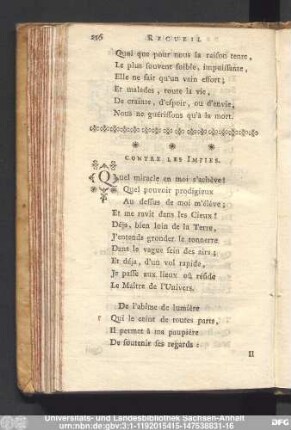 256 RECUEIL
Quoi que pour nous la raison tente,
Le plus souvent foible, impuissante,
Elle ne fait qu'un vain effort;
Et malades, toute la vie,
De crainte, d'espoir, ou d'envie,
Nous ne guérissons qu'à la mort.
CONTRE LES IMPIES.
Quel miracle en moi s'achève!
Quel pouvoir prodigieux
Au dessus de moi m'élève;
Et me ravit dans les Cieux!
Déja, bien loin de la Terre,
J'entends gronder le tonnerre
Dans le vague sein des airs;
Et déja, d'un vol rapide,
Je passe aux lieux où réside
Le Maître de l'Univers.
De l'abîme de lumière
Qui le ceint de toutes parts,
Il permet à ma paupière
De soutenir ses regards:
Il
Universitäts- und Landesbibliothek Sachsen-Anhalt
urn:nbn:de:gbv:3:1-1192015415-147538831-16